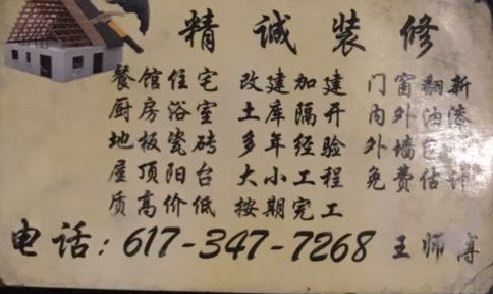 精诚装修
餐馆住宅 改建加建 门窗翻新
厨房浴室 土库隔开 内外油漆
地板瓷砖 多年经验 外墙
屋顶阳台 大小工程 免费估计
质高价低 按期完工
电话:617-347-7268 王师傅